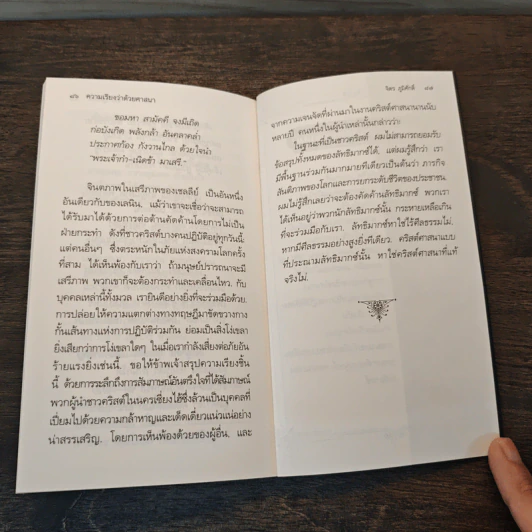 ๘๖ ความเรียงว่าด้วยศาสนา
ขอมหา สามัคคี จงมีเกิด
ก่อบังเกิด พลังกล้า อันคลาคล่ำ
ประกาศก้อง กังวานไกล ด้วยใจนำ
"พระเจ้าก๋า-เนิดข้า มาเสรี."
จินตภาพในเสรีภาพของเชลลีย์ เป็นอันหนึ่ง
อันเดียวกับของเลนิน, แม้ว่าเขาจะเชื่อว่าจะสามารถ
ได้รับมาได้ด้วยการต่อต้านคัดค้านโดยการไม่เป็น
ฝ่ายกระทำ ดังที่ชาวคริสต์บางคนปฏิบัติอยู่ทุกวันนี้;
แต่คนอื่นๆ ซึ่งตระหนักในภัยแห่งสงครามโลกครั้ง
ที่สาม ได้เห็นพ้องกับเราว่า ถ้ามนุษย์ปรารถนาจะมี
เสรีภาพ พวกเขาก็จะต้องกระทำและเคลื่อนไหว. กับ
บุคคลเหล่านี้ทั้งมวล เรายินดีอย่างยิ่งที่จะร่วมมือด้วย.
การปล่อยให้ความแตกต่างทางทฤษฎีมาขัดขวางกาง
กั้นเส้นทางแห่งการปฏิบัติร่วมกัน ย่อมเป็นสิ่งโง่เขลา
ยิ่งเสียกว่าการโง่เขลาใดๆ ในเมื่อเรากำลังเสี่ยงต่อภัยอัน
ร้ายแรงยิ่งเช่นนี้. ขอให้ข้าพเจ้าสรุปความเรียงชิ้น
นี้ ด้วยการระลึกถึงการสัมภาษณ์อันตรึงใจที่ได้สัมภาษณ์
พวกผู้นำชาวคริสต์ในนครเซี่ยงไฮ้ซึ่งล้วนเป็นบุคคลที่
เปี่ยมไปด้วยความกล้าหาญและเด็ดเดี่ยวแน่วแน่อย่าง
น่าสรรเสริญ. โดยการเห็นพ้องด้วยของผู้อื่น, และ
จิตร ภูมิศักดิ์ ๘๗
จากความเจนจัดที่ผ่านมาในงานคริสต์ศาสนานานนับ
หลายปี คนหนึ่งในผู้นำเหล่านั้นกล่าวว่า:
ในฐานะที่เป็นชาวคริสต์ ผมไม่สามารถยอมรับ
ข้อสรุปทั้งหมดของลัทธิมากซ์ได้, แต่ผมรู้สึกว่า เรา
มีพื้นฐานร่วมกันมากมายทีเดียวเป็นต้นว่า ภารกิจ
สันติภาพของโลกและการยกระดับชีวิตของประชาชน.
ผมไม่รู้สึกเลยว่าจะต้องคัดค้านลัทธิมากซ์, พวกเรา
ได้เห็นอยู่ว่าพวกนักลัทธิมากซ์นั้น กระหายเหลือเกิน
ที่จะร่วมมือกับเรา. ลัทธิมากซ์หาใช่ไร้ศีลธรรมไม่,
หากมีศีลธรรมอย่างสูงยิ่งทีเดียว. คริสต์ศาสนาแบบ
ที่ประณามลัทธิมากซ์นั้น หาใช่คริสต์ศาสนาที่แท้
จริงไม่.